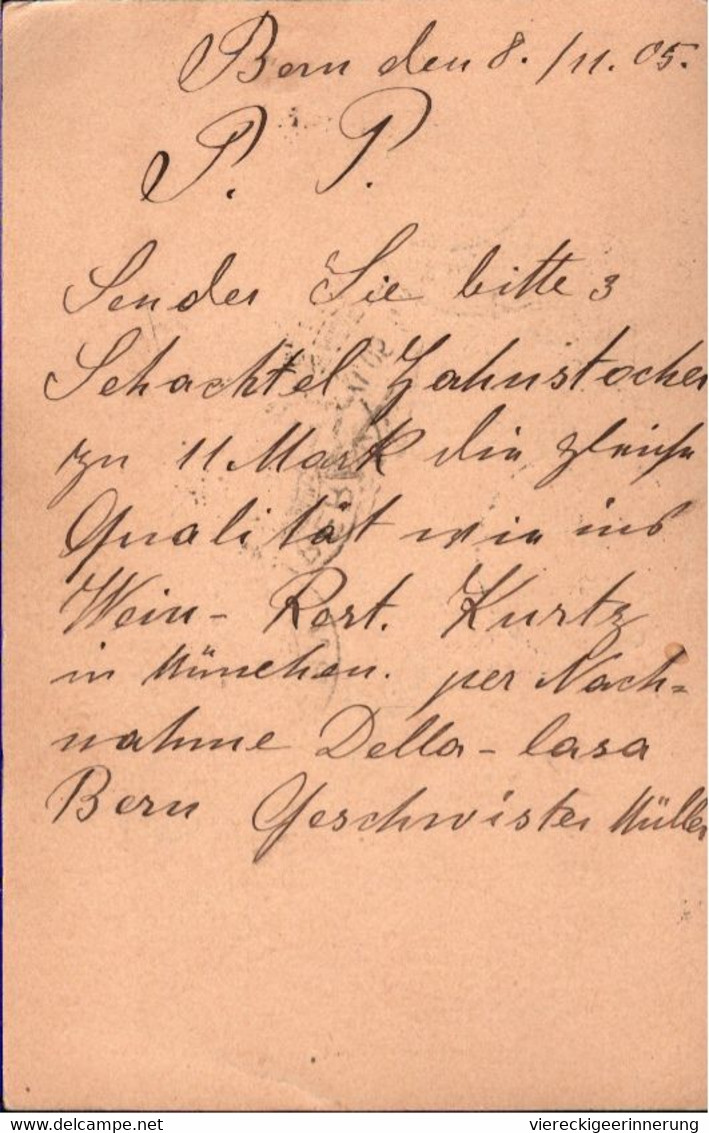 Bern den 8./11. 05.
P. P.
Senden Sie bitte 3
Schachtel Zahnstocher
zu 11 Mark die gleiche
Qualität wie ins
Wein- Rest. Kurtz
in München. per Nach=
nahme Della-casa
Bern Geschwister Müller
DELCAMPE.NET
viereckigeerinnerung